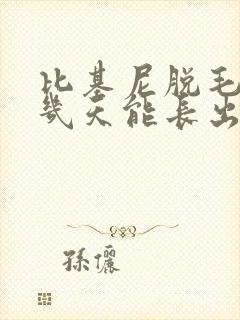 比基尼脱毛
几天能长出
孫儷